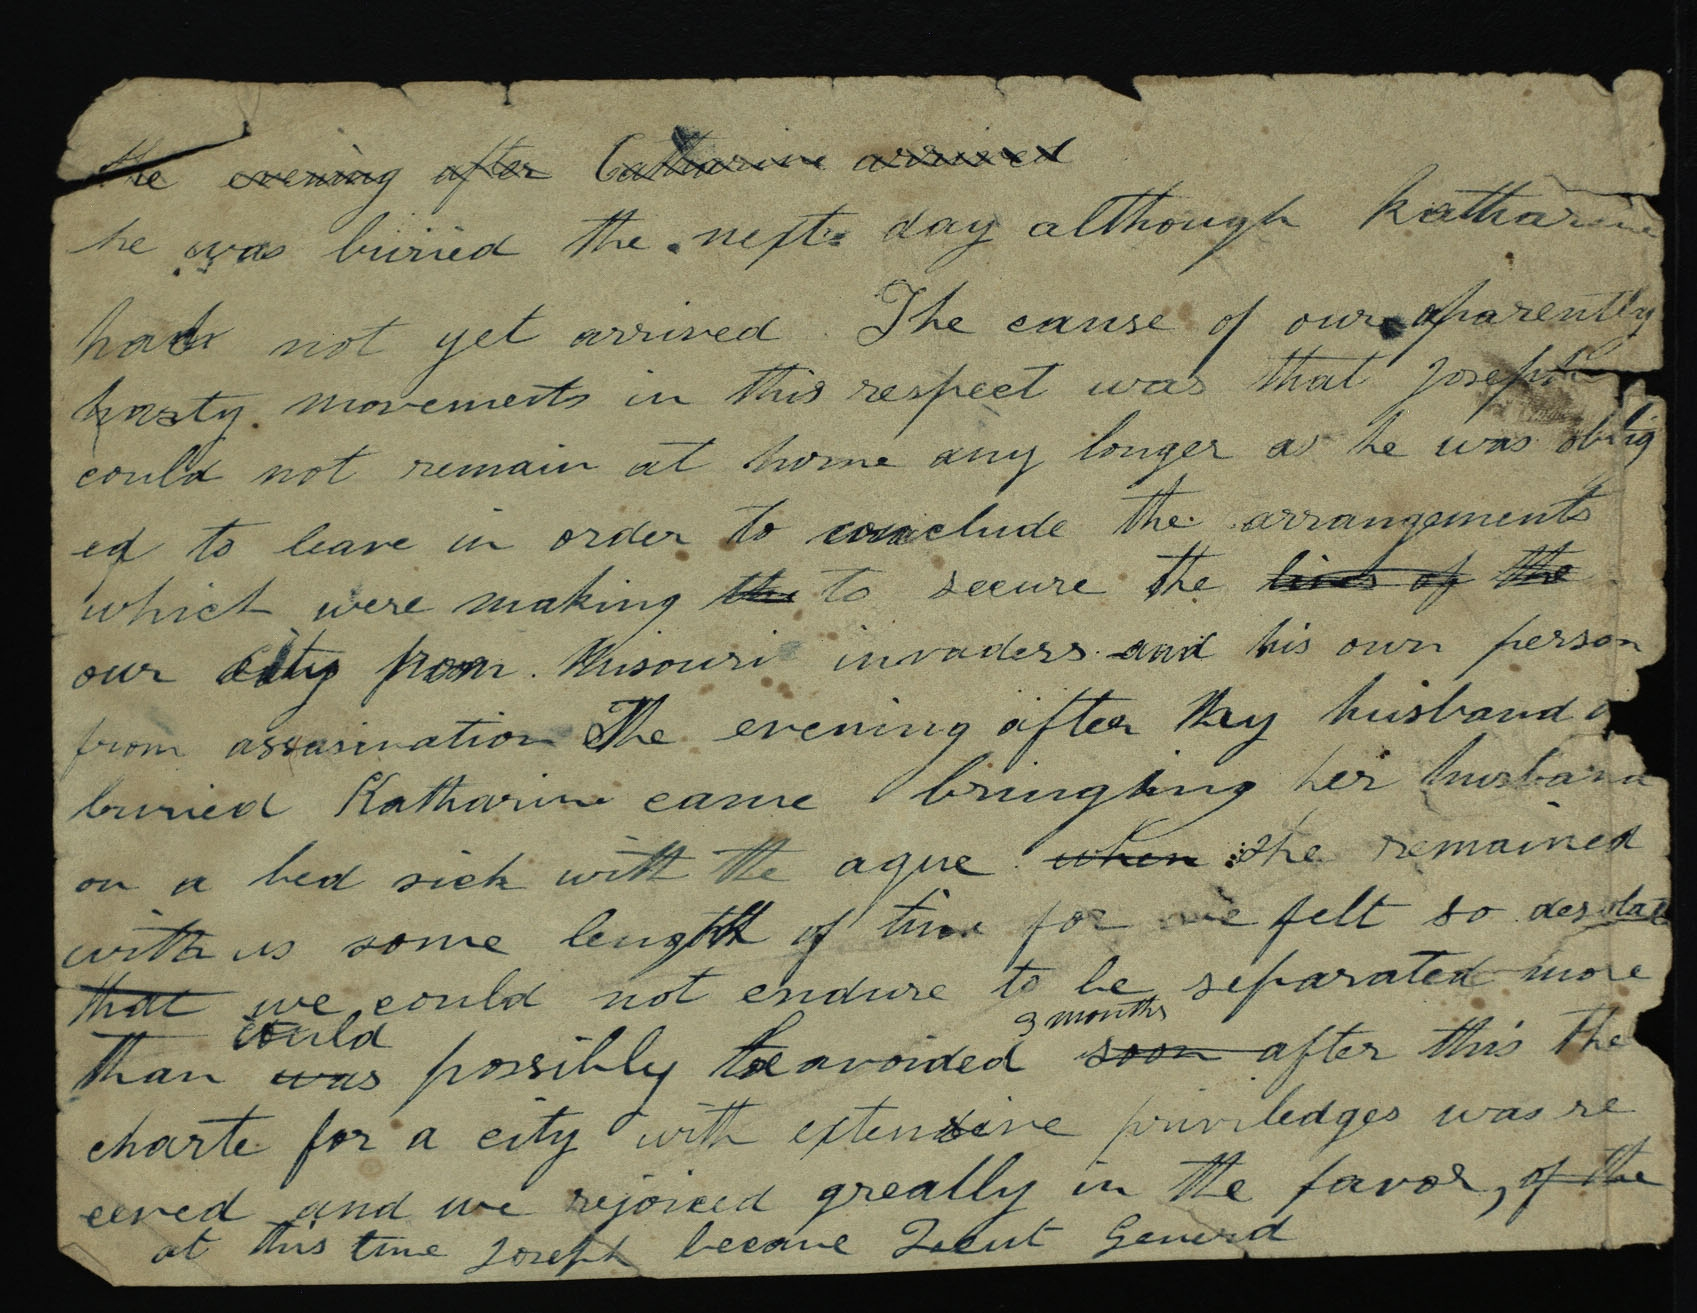 the evening after Catharine arrived
he was buried the next day although Katharine
had not yet arrived The cause of our aparently
hasty movements in this respect was that Joseph
could not remain at home any longer as he was oblig
ed to leave in order to conclude the arrangements
which were making the to secure the lives of the
our city from Misouri invaders and his own person
from assasination The evening after my husband
buried Katharine came bringing her husband
on a bed sick with the ague when she remained
with us some length of time for we felt so desolate
that we could not endure to be separated more
3 months
could
than was possibly be avoided soon after this the
charte for a city with extensive priviledges was re
ceeved and we rejoiced greatly in the favor, of the
at this time Joseph became Lieut General